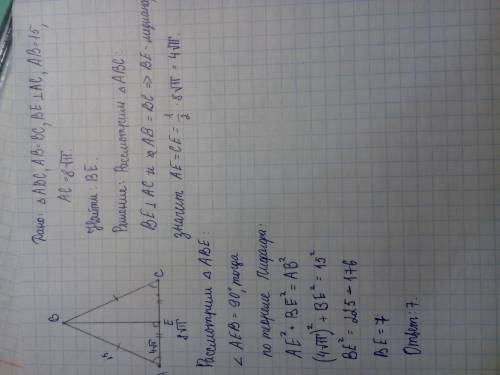 Дано: △ABC, AB=BC, BE⊥AC, AB=15,
AC=8√11.
Найти: BE.
Решение: Рассмотрим △ABC:
BE⊥AC и AB=BC ⇒ BE-медиана,
значит AE=CE=1/2·8√11=4√11.
B
A
4√11
E
C
8√11
Рассмотрим △ABE:
∠AEB=90°, тогда
по теореме Пифагора:
AE²+BE²=AB²
(4√11)²+BE²=15²
BE²=225-176
BE=7
Ответ: 7.